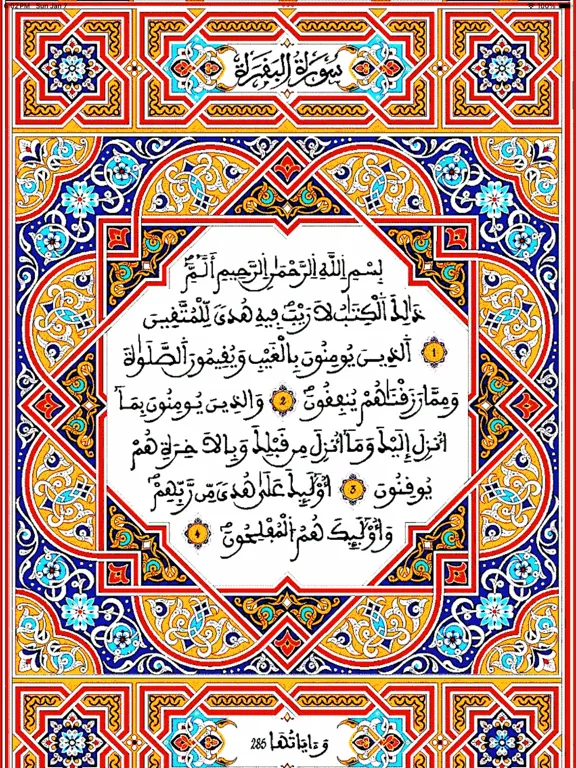 2 PM Sun Jan 7
100%
سُورَةُ الْبَقَرَةِ
بِسْمِ اِللَّهِ اِلرَّحْمَٰنِ اِلرَّحِيمِ أَلَٓمِّٓ
ذَٰلِكَ اَلْكِتَٰبُ لَا رَيْبَۖ فِيهِ هُدىٗ لِّلْمُتَّقِينَ
1 اَلذِينَ يُومِنُونَ بِالْغَيْبِ وَيُقِيمُونَ اَلصَّلَوٰةَ
وَمِمَّا رَزَقْنَٰهُمْ يُنفِقُونَۖ 2 وَالذِينَ يُومِنُونَ بِمَآ
أُنزِلَ إِلَيْكَ وَمَآ أُنزِلَ مِن قَبْلِكَ وَبِالَاخِرَةِ هُمْ
يُوقِنُونَ 3 أُوْلَٰٓئِكَ عَلَىٰ هُدىٗ مِّن رَّبِّهِمْۖ
وَأُوْلَٰٓئِكَ هُمُ اَلْمُفْلِحُونَۖ 4
وَءَايَاتُهَا 286